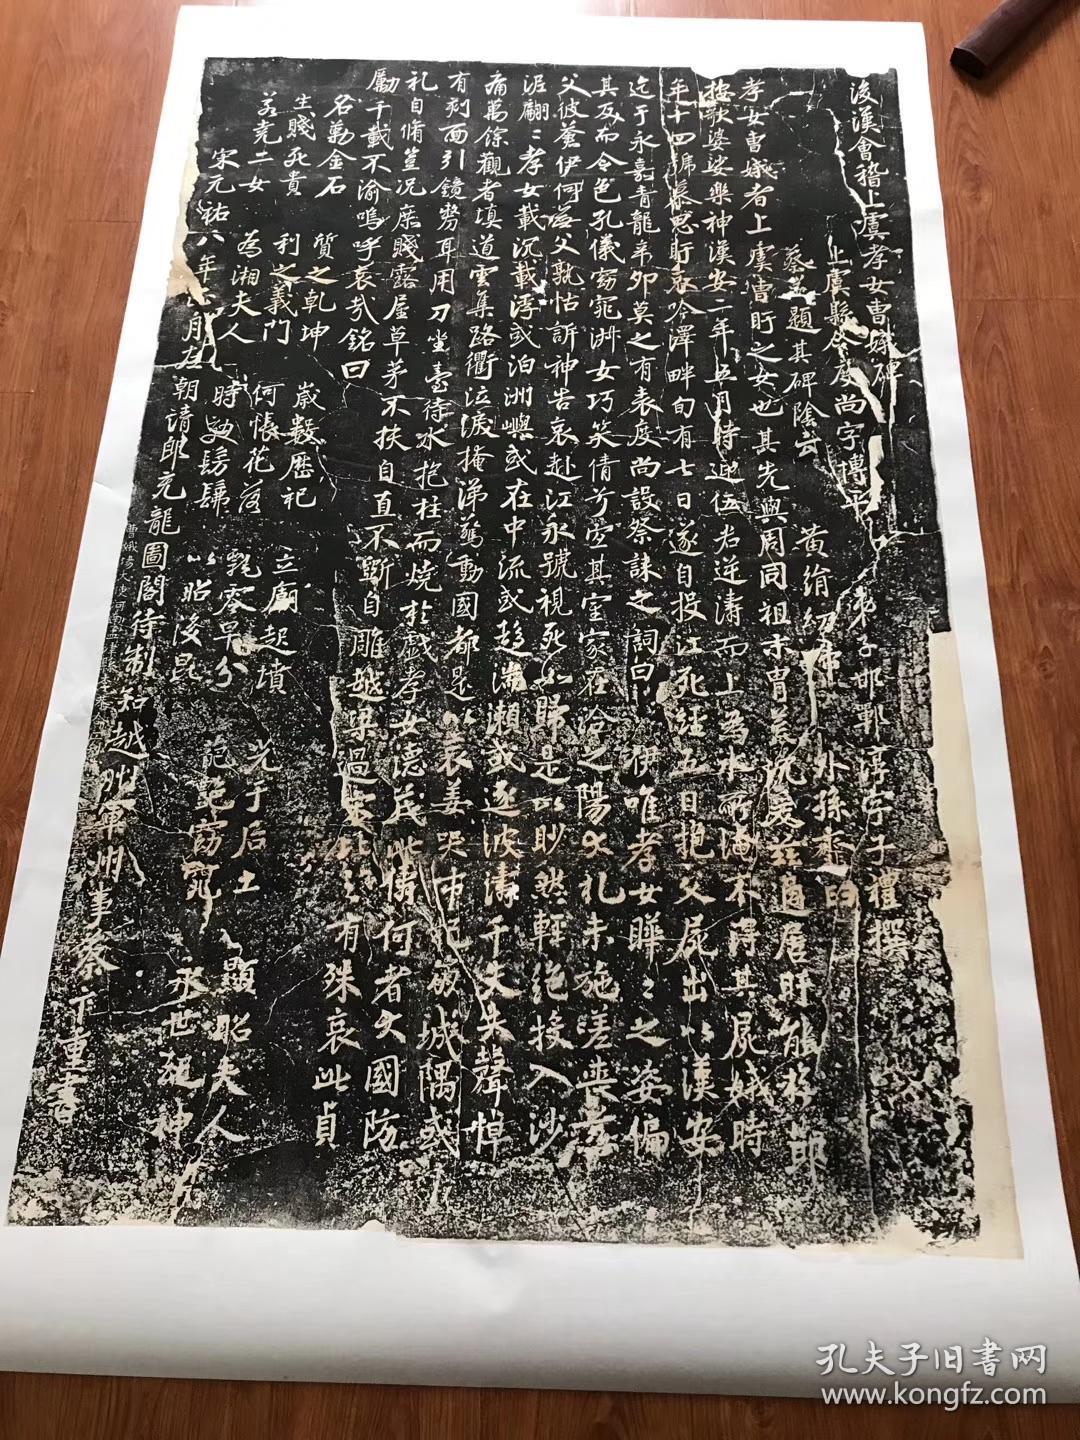 後漢會稽上虞孝女曹娥碑
上虞縣令度尚字博平 弟子邯鄲淳字子禮撰
蔡邕題其碑陰云 黄絹幼婦 外孫齏臼
孝女曹娥者上虞曹盱之女也其先與周同祖末胄荒沈爰兹適居盱能撫節
按歌婆娑樂神漢安二年五月時迎伍君逆濤而上為水所淹不得其屍娥時
年十四號慕思盱哀吟澤畔旬有七日遂自投江死經五日抱父屍出以漢安
迄于永嘉青龍辛卯莫之有表度尚設祭誄之詞曰 伊唯孝女曄〻之姿偏
其反而令色孔儀窈窕淑女巧笑倩兮宜其室家在洽之陽大礼未施嗟喪慈
父彼蒼伊何無父孰怙訴神告哀赴江永號視死如歸是以眇然輕絶投入沙
泥翩〻孝女載沉載浮或泊洲嶼或在中流或趍湍瀨或逐波濤千夫失聲悼
痛萬餘觀者填道雲集路衢泣淚掩涕驚動國都是以哀姜哭市杞崩城隅或
有刻面引鏡剺耳用刀坐臺待水抱柱而燒於戲孝女德茂此儔何者大國防
礼自脩豈况庶賤露屋草茅不扶自直不斵自雕越梁過宋比之有殊哀此貞
勵千載不渝嗚呼哀哉銘曰
名勒金石 質之乾坤 歲數歷祀 立廟起墳 光于后土 顯昭夫人
生賤死貴 利之義門 何悵花落 飄零早分 葩艷窈窕 永世祀神
若堯二女 為湘夫人 時效髣髴 以昭後昆
宋元祐八年 月左朝請郎充龍圖閣待制知越州軍州事蔡卞重書
孔夫子旧書网
www.kongfz.com